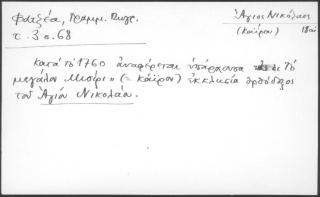 Φατζέα, Γραμμ. Πυγρ.
τ. 3 σ. 68
Ἅγιος Νικόλαος
(Καΐρου) 18ου
κατὰ τὸ 1760 ἀναφέρεται ὑπάρχουσα τὸ
μεγάλον Μισίρι» (= Κάϊρον) ἐκκλησία ὀρθόδοξος
τοῦ Ἁγίου Νικολάου.